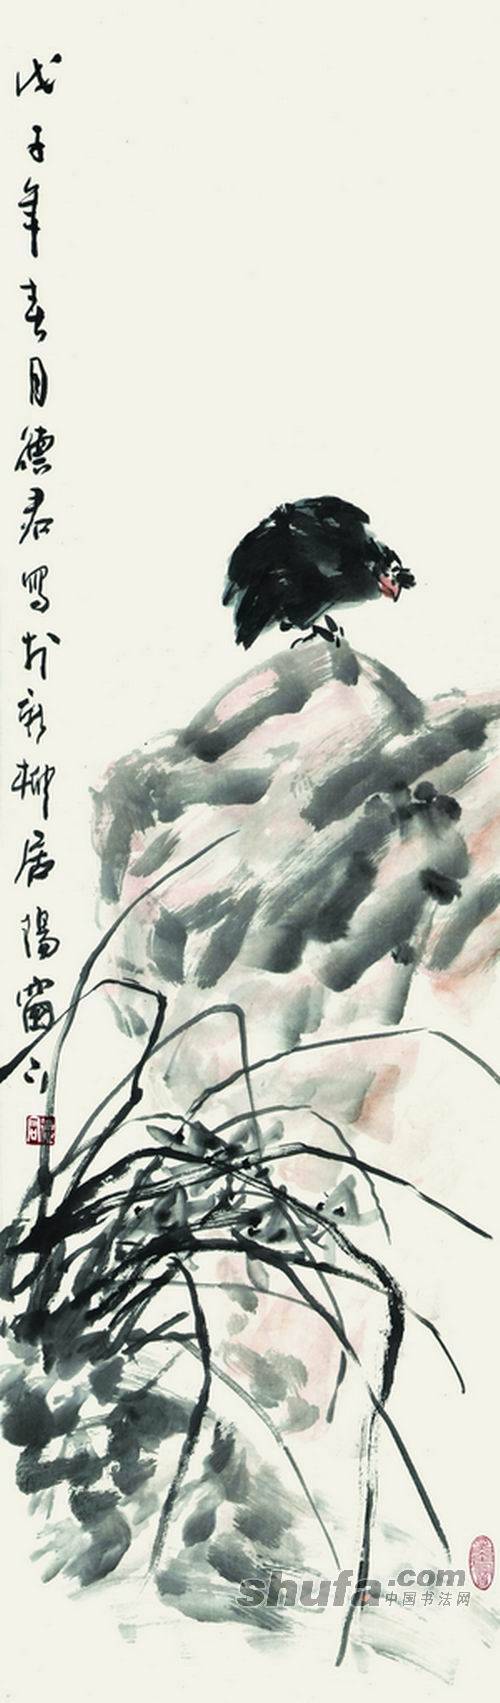 戊子年春月德君写於新柳居陽窗下
shufa.com
中国书法网